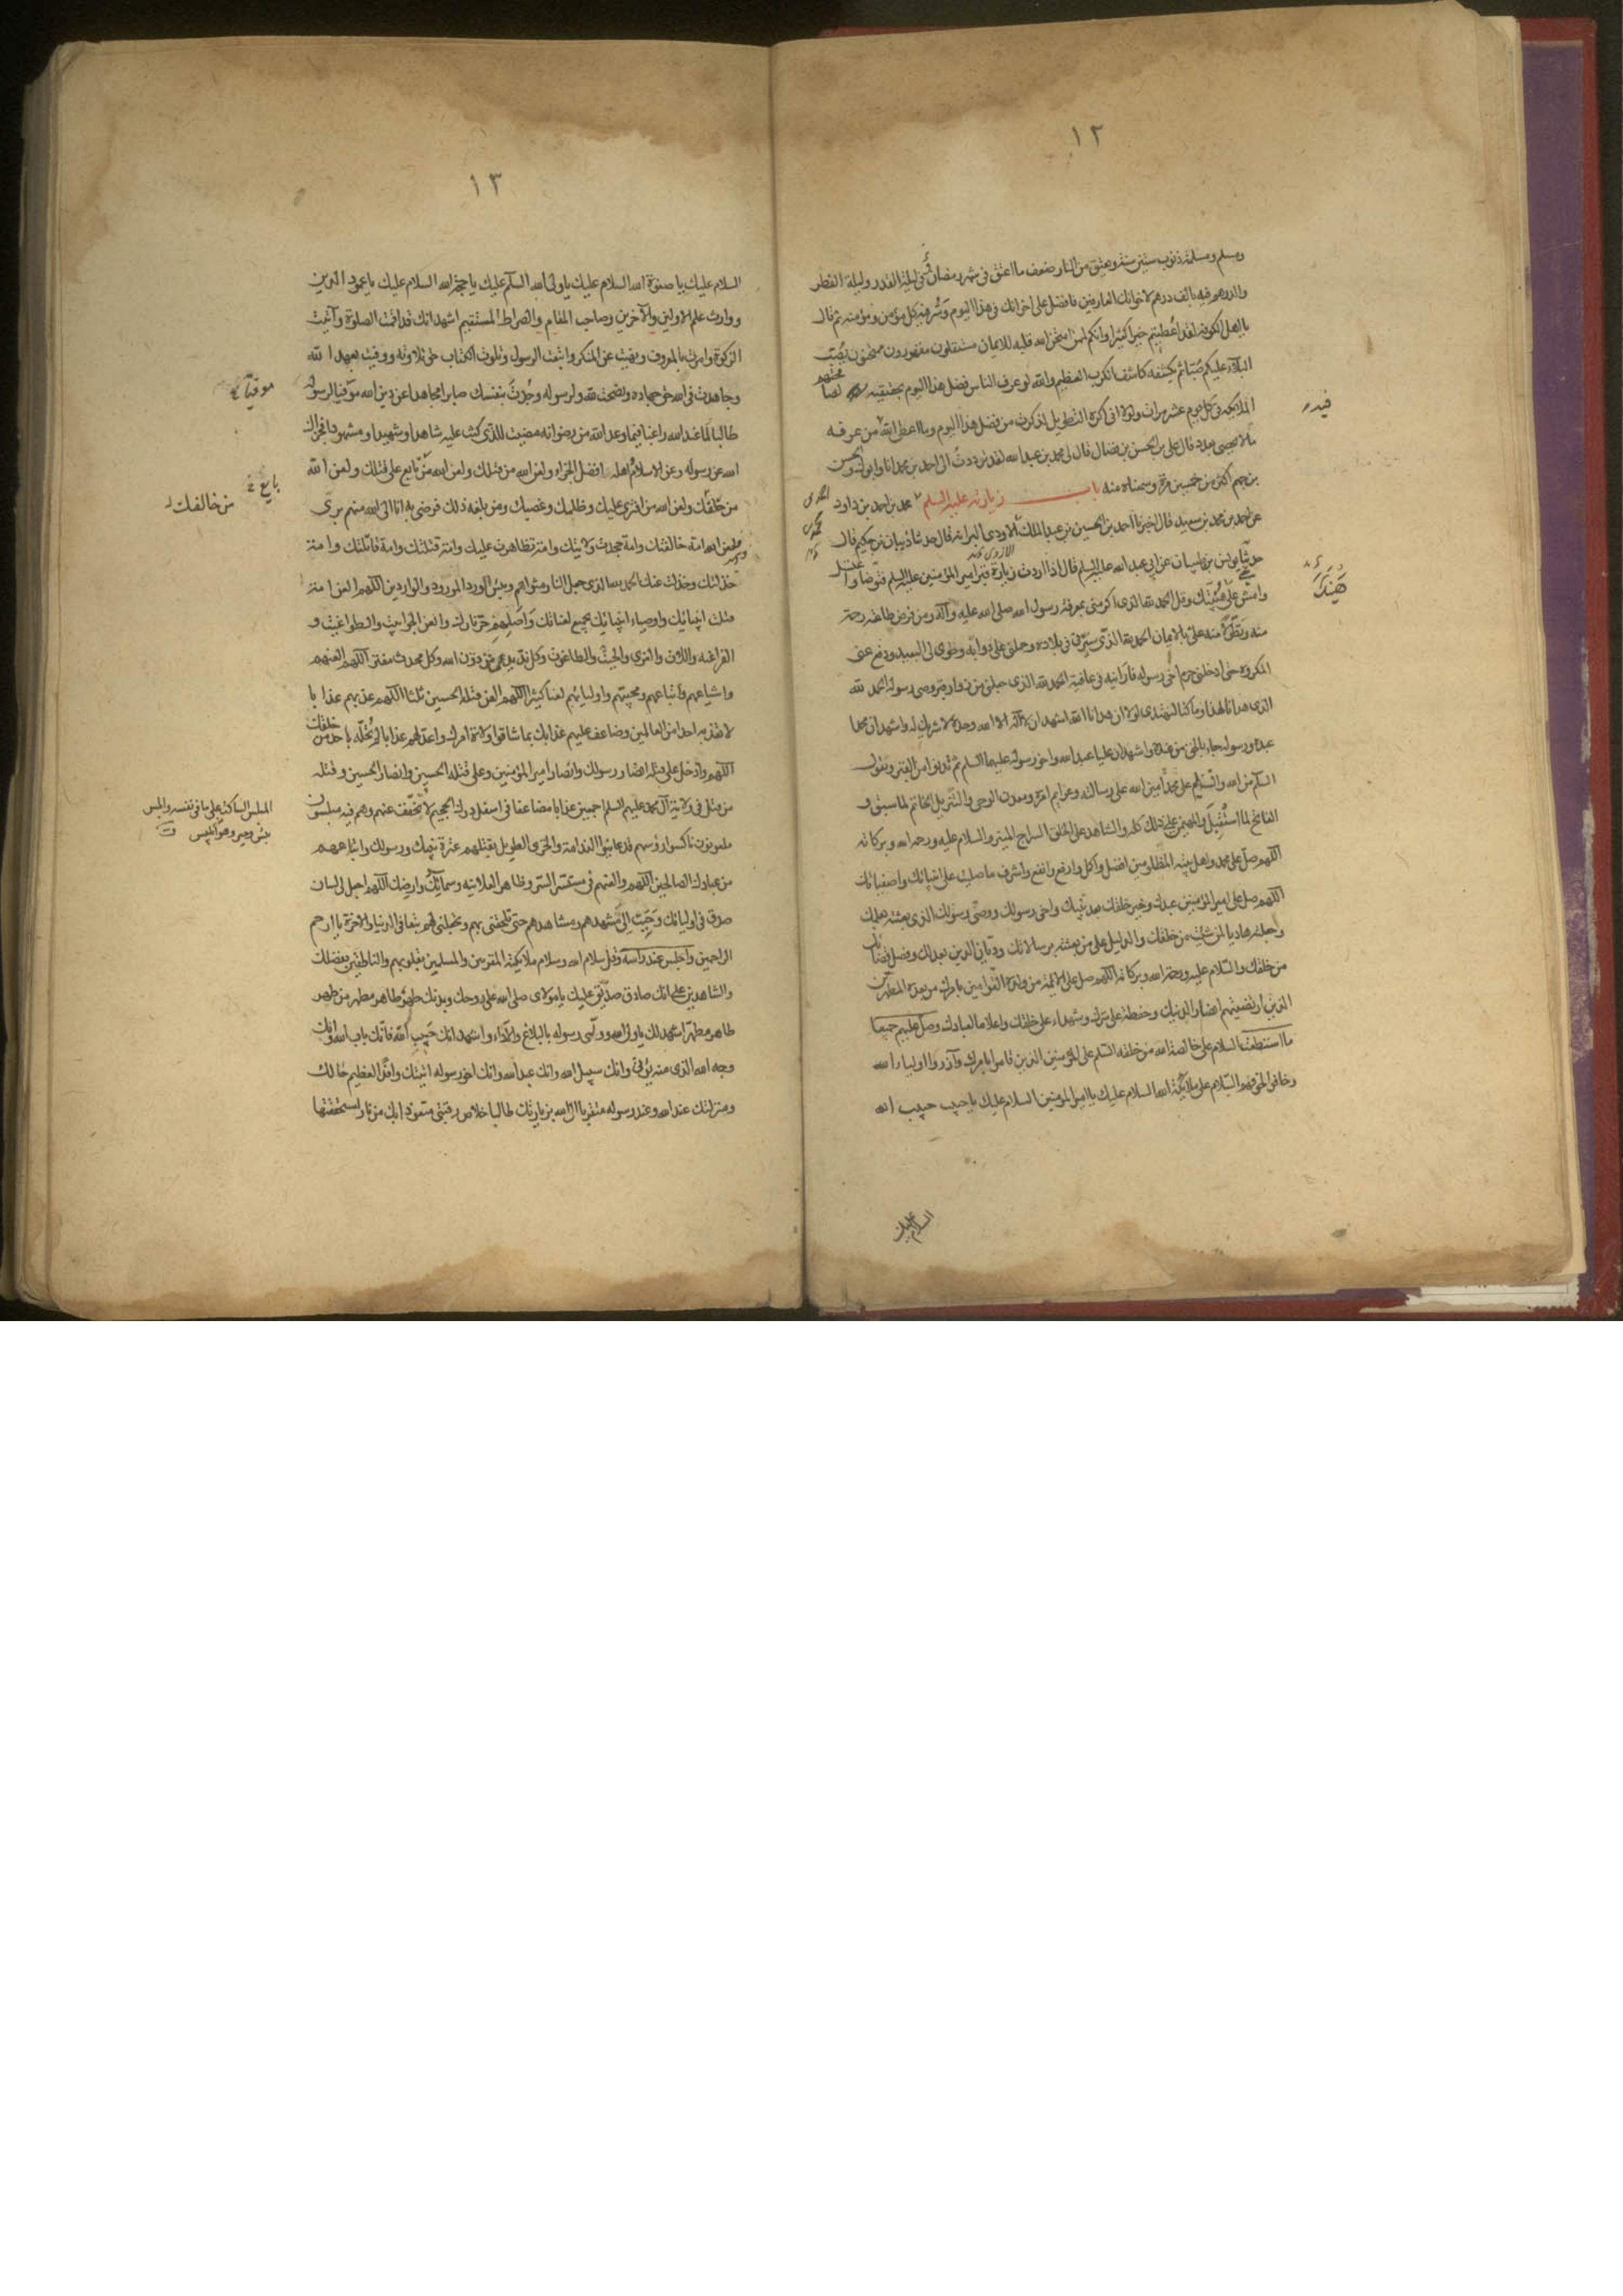 ١٢
ومسلم ومسلمة ذنوب ستين سنة ويعتق من النار ضعف ما اعتق في شهر رمضان وفي ليلة القدر وليلة الفطر
والدرهم فيه بالف درهم لاخوانك العارفين فافضل على اخوانك في هذا اليوم وسُر فيه كل مؤمن ومؤمنة ثم قال
يا اهل الكوفة لقد اُعطيتم خيرا كثيرا وانكم لمن امتحن الله قلبه للايمان مستقلون مقهورون ممتحنون يُصَبّ
البلاء عليكم صَبّا ثم يكشفه كاشف الكرب العظيم والله لو عرف الناس فضل هذا اليوم بحقيقته لصافحتهم
الملائكة في كل يوم عشر مرات ولولا اني اكره التطويل لذكرت من فضل هذا اليوم وما اعطى الله من عرفه
ما لا يحصى بعدد قال علي بن الحسن بن فضال قال لي محمد بن عبد الله لقد ترددت الى احمد بن محمد انا وابوك والحسن
بن جهم اكثر من خمسين مرة وسمعناه منه باب زيارته عليه السلم محمد بن احمد بن داود
عن احمد بن محمد بن سعيد قال اخبرنا احمد بن الحسين بن عبد الملك الاودي البزاز قال حدثنا ذبيان بن حكيم قال
حدثنا يونس بن ظبيان عن ابي عبد الله عليه السلم قال اذا اردت زيارة قبر امير المؤمنين عليه السلم فتوضأ واغتسل
وامش على هُنَيئتك وقل الحمد لله الذي اكرمني بمعرفة رسول الله صلى الله عليه وآله ومن فرض طاعته رحمة
منه وتطوّلا منه عليّ بالايمان الحمد لله الذي سيّرني في بلاده وحملني على دوابّه وطوى لي البعيد ودفع عني
المكروه حتى ادخلني حرم اخي رسوله فارانيه في عافية الحمد لله الذي جعلني من زوار قبر وصي رسوله الحمد لله
الذي هدانا لهذا وما كنا لنهتدي لولا ان هدانا الله اشهد ان لا اله الا الله وحده لا شريك له واشهد ان محمدا
عبده ورسوله جاء بالحق من عنده واشهد ان عليا عبد الله واخو رسوله عليهما السلم ثم تدنو من القبر وتقول
السلم من الله والتسليم على محمد امين الله على رسالته وعزايم امره ومعدن الوحي والتنزيل الخاتم لما سبق و
الفاتح لما استُقبِلَ والمهيمن على ذلك كله والشاهد على الخلق السراج المنير والسلام عليه ورحمة الله وبركاته
اللهم صل على محمد واهل بيته المظلومين افضل واكمل وارفع وانفع واشرف ما صليت على انبيائك واصفيائك
اللهم صل على امير المؤمنين عبدك وخير خلقك بعد نبيك واخي رسولك ووصي رسولك الذي بعثته بعلمك
وجعلته هاديا لمن شئت من خلقك والدليل على من بعثته برسالاتك وديّان الدين بعدلك وفصل قضائك
من خلقك والسّلام عليه ورحمة الله وبركاته اللهم صل على الائمة من ولده القوامين بامرك من بعده المطهّرين
الذين ارتضيتهم انصارا لدينك وحفظة على سرك وشهداء على خلقك واعلاما لعبادك وصلّ عليهم جميعا
ما استطعت السلام على خالصة الله من خلقه السلم على المؤمنين الذين قاموا بامرك وآزروا اولياء الله
وخافوا لخوفهم السّلام على ملائكة الله السلام عليك يا امير المومنين السلام عليك يا حبيب حبيب الله
السلام عليك
١٣
السلام عليك يا صفوة الله السلام عليك يا ولي الله السلم عليك يا حجة الله السلام عليك يا عمود الدين
ووارث علم الاولين والآخرين وصاحب المقام والصراط المستقيم اشهد انك قد اقمت الصلوة وآتيت
الزكوة وامرت بالمعروف ونهيت عن المنكر واتبعت الرسول وتلوت الكتاب حق تلاوته ووفيت بعهد الله
وجاهدت في الله حق جهاده ونصحت لله ولرسوله وجُدت بنفسك صابرا مجاهدا عن دين الله موقيا لرسوله
طالبا لما عند الله راغبا فيما وعد الله من رضوانه مضيت للذي كنت عليه شاهدا وشهيدا ومشهودا فجزاك
الله عن رسوله وعن الاسلام واهله افضل الجزاء ولعن الله من قتلك ولعن الله من تابع على قتلك ولعن الله
من خالفك ولعن الله من افترى عليك وظلمك وغصبك ومن بلغه ذلك فرضي به انا الى الله منهم برئ
ولعن الله امة خالفتك وامة جحدت ولايتك وامة تظاهرت عليك وامة قتلتك وامة قاتلتك وامة
خذلتك وخذلت عنك الحمد لله الذي جعل النار مثواهم وبئس الورد المورود والواردين اللهم العن امة
قتلت انبيائك واوصياء انبيائك بجميع لعناتك واَصلِهم حرّ نارك والعن الجوابيت والطواغيت و
الفراعنة واللات والعزى والجبت والطاغوت وكل ند يدعى من دون الله وكل محدث مفتر اللهم العنهم
واشياعهم واتباعهم ومحبيهم واوليائهم لعنا كثيرا اللهم العن قتلة الحسين ثلثا اللهم عذبهم عذابا
لا تعذبه احدا من العالمين وضاعف عليهم عذابك بما شاقوا ولاة امرك واعدّ لهم عذابا لم تُحلّه باحد من خلقك
اللهم وادخل على قتلة انصار رسولك وانصار امير المؤمنين وعلى قتلة الحسين وانصار الحسين وقتلة
من قتل في ولاية آل محمد عليهم السلم اجمعين عذابا مضاعفا في اسفل درك الجحيم لا تخفّف عنهم وهم فيه مبلسون
ملعونون ناكسوا رؤسهم قد عاينوا الندامة والخزي الطويل بقتلهم عترة نبيك ورسولك واتباعهم
من عبادك الصالحين اللهم والعنهم في مستسر السر وظاهر العلانية وسمائك وارضك اللهم اجعل لي لسان
صدق في اوليائك وحَبّب اليّ مشهدهم ومشاهدهم حتى تلحقني بهم وتجعلني لهم تبعا في الدنيا والاخرة يا ارحم
الراحمين واجلس عند رأسه وقل سلام الله وسلام ملائكته المقربين والمسلمين بقلوبهم والناطقين بفضلك
والشاهدين على انك صادق صدّيق عليك يا مولاي صلى الله على روحك وبدنك طهر طاهر مطهر من طهر
طاهر مطهّر اشهد لك يا ولي الله وولي رسوله بالبلاغ والاداء واشهد انك حَبيب الله فانّك باب الله وانك
وجه الله الذي منه يؤتى وانك سبيل الله وانك عبد الله وانك اخو رسوله اتيتك وافدا لعظيم حالك
ومنزلتك عند الله وعند رسوله متقربا الى الله بزيارتك طالبا خلاص رقبتي متعوذا بك من نار استحققتها
موقيا
بايع
من خالفك
المبلس الساكت على ما في نفسه